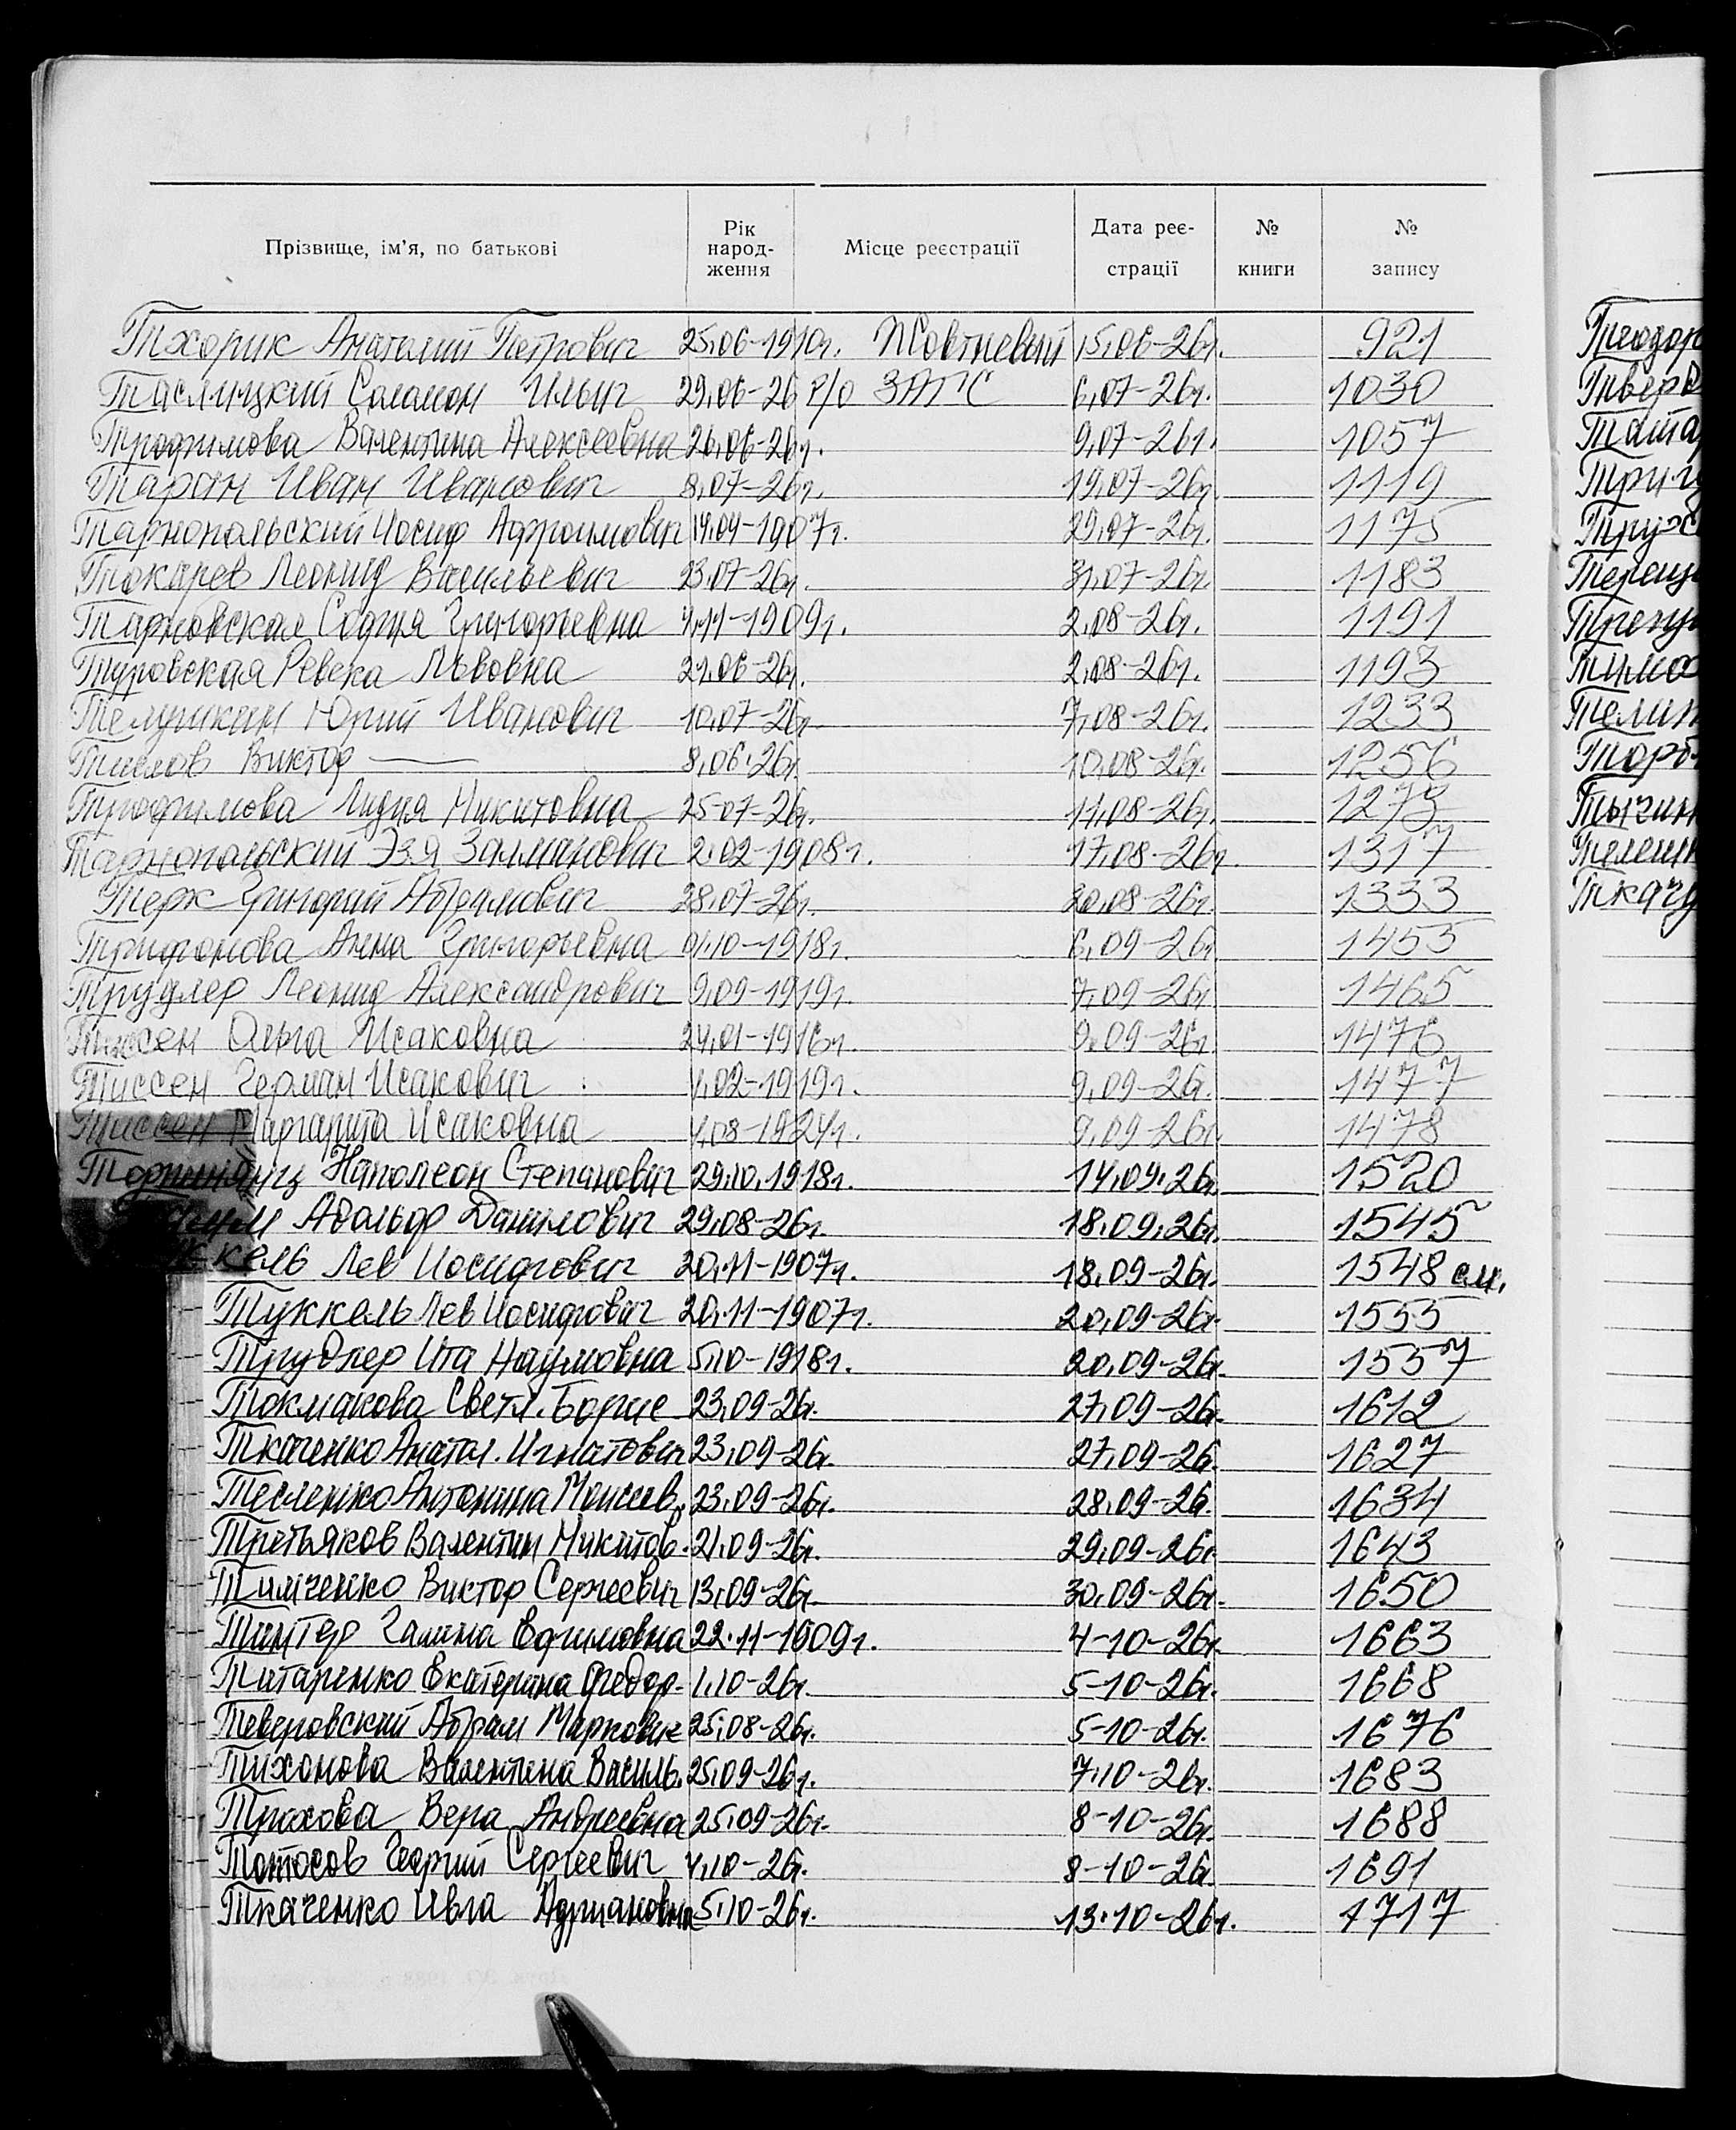 Прізвище, ім'я, по батькові Рік народ-ження Місце реєстрації Дата реє-страції № книги № запису
Тхорик Анатолий Петрович 25.06-1910г. Жовтневый 15.06-26г. 921
Таслицкий Соломон Ильич 29.06-26 р/о ЗАГС 6.07-26г. 1030
Трофимова Валентина Алексеевна 26.06-26г. 9.07-26г. 1057
Таран Иван Иванович 8.07-26г. 19.07-26г. 1119
Тарнопольский Иосиф Афроимович 14.04-1907г. 29.07-26г. 1175
Токарев Леонид Васильевич 23.07-26г. 31.07-26г. 1183
Тарновская София Григорьевна 4.11-1909г. 2.08-26г. 1191
Туровская Ревека Львовна 24.06-26г. 2.08-26г. 1193
Юрий Иванович 10.07-26г. 7.08-26г. 1233
Виктор — 8.06.26г. 10.08-26г. 1256
Трофимова Лидия Никитовна 25-07-26г. 11.08-26г. 1273
Тарнопольский Эзя Залманович 2.02-1908г. 17.08-26г. 1317
Терк Григорий Абрамович 28.07-26г. 20.08-26г. 1333
Трифонова Анна Григорьевна 01.10-1918г. 6.09-26г. 1453
Трудлер Леонид Александрович 9.09-1919г. 7.09-26г. 1465
Тиссен Ольга Исаковна 24.01-1916г. 9.09-26г. 1476
Тиссен Герман Исакович 1.02-1919г. 9.09-26г. 1477
Тиссен Маргарита Исаковна 4.08-1924г. 9.09-26г. 1478
Наполеон Степанович 29.10.1918г. 14.09.26г. 1520
Адольф Данилович 29.08-26г. 18.09.26г. 1545
кель Лев Иосифович 20.11-1907г. 18.09-26г. 1548 см.
Туккель Лев Иосифович 20.11-1907г. 20.09-26г. 1555
Трудлер Ита Наумовна 5.10-1918г. 20.09-26г. 1557
Токмакова Светл. Борис 23.09-26г. 27.09-26г. 1612
Ткаченко Анатол. Игнатович 23.09-26г. 27.09-26г. 1627
Тесленко Антонина Моисеев. 23.09-26г. 28.09-26г. 1634
Третьяков Валентин Никитов. 21.09-26г. 29.09-26г. 1643
Тимченко Виктор Сергеевич 13.09-26г. 30.09-26г. 1650
Тинтер Галина Ефимовна 22.11-1909г. 4-10-26г. 1663
Титаренко Екатерина Федор. 1.10-26г. 5-10-26г. 1668
Теверовский Абрам Маркович 25.08-26г. 5-10-26г. 1676
Тихонова Валентина Василь. 25.09-26г. 7.10-26г. 1683
Трихова Вера Андреевна 25.09-26г. 8-10-26г. 1688
Тотосов Георгий Сергеевич 4.10-26г. 8-10-26г. 1691
Ткаченко Ивга Адриановна 5.10-26г. 13.10-26г. 1717